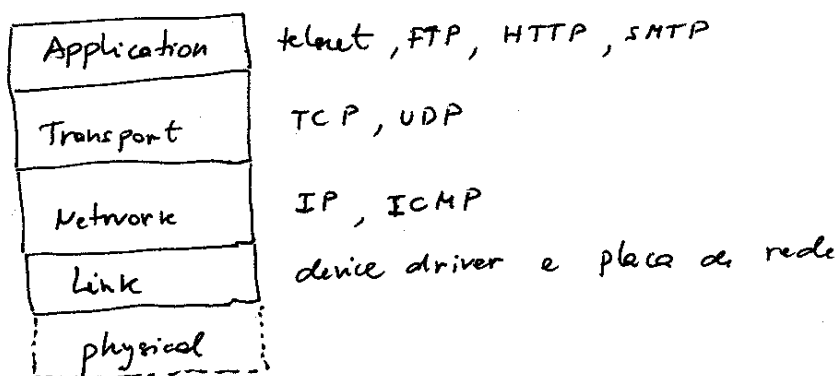 Application telnet, FTP, HTTP, SMTP
Transport TCP, UDP
Network IP, ICMP
Link device driver e placa de rede
physical